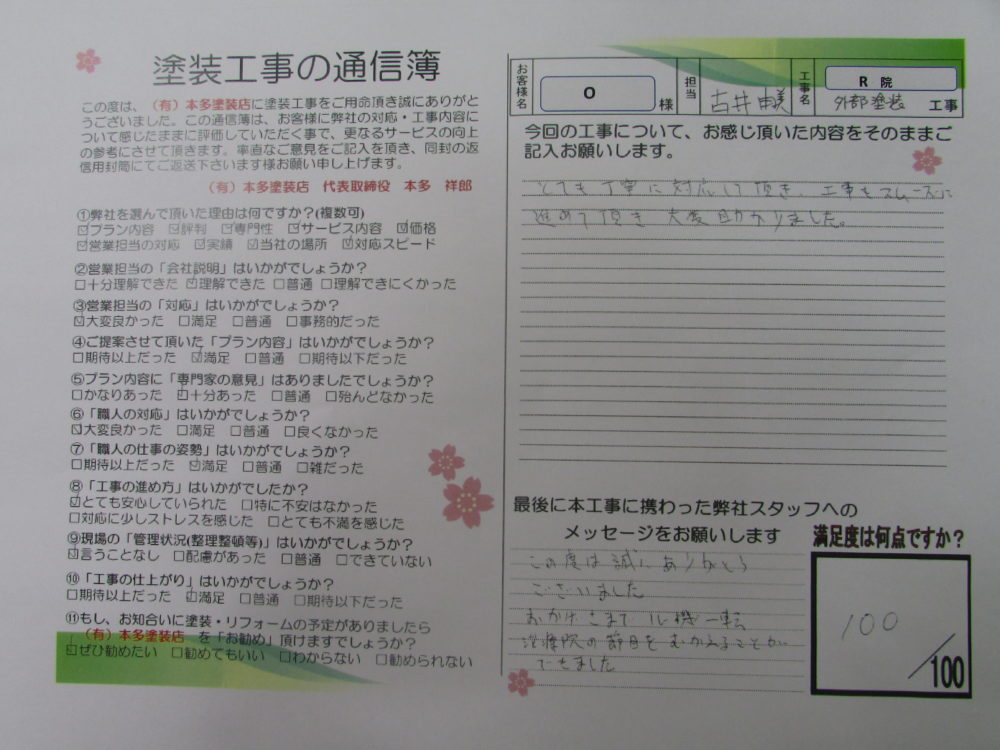 塗装工事の通信簿
この度は、(有)本多塗装店に塗装工事をご用命頂き誠にありがと
うございました。この通信簿は、お客様に弊社の対応・工事内容
について感じたままに評価していただく事で、更なるサービスの向上
の参考にさせて頂きます。率直なご意見をご記入を頂き、同封の返
信用封筒にてご返送下さいます様お願い申し上げます。
(有)本多塗装店 代表取締役 本多 祥郎
①弊社を選んで頂いた理由は何ですか?(複数可)
☑プラン内容 ☑評判 ☑専門性 ☑サービス内容 ☑価格
☑営業担当の対応 ☑実績 ☑当社の場所 ☑対応スピード
②営業担当の「会社説明」はいかがでしょうか?
□十分理解できた ☑理解できた □普通 □理解できにくかった
③営業担当の「対応」はいかがでしょうか?
☑大変良かった □満足 □普通 □事務的だった
④ご提案させて頂いた「プラン内容」はいかがでしょうか?
□期待以上だった ☑満足 □普通 □期待以下だった
⑤プラン内容に「専門家の意見」はありましたでしょうか?
□かなりあった ☑十分あった □普通 □殆んどなかった
⑥「職人の対応」はいかがでしょうか?
☑大変良かった □満足 □普通 □良くなかった
⑦「職人の仕事の姿勢」はいかがでしょうか?
□期待以上だった ☑満足 □普通 □雑だった
⑧「工事の進め方」はいかがでしたか?
☑とても安心していられた □特に不安はなかった
□対応に少しストレスを感じた □とても不満を感じた
⑨現場の「管理状況(整理整頓等)」はいかがでしょうか?
☑言うことなし □配慮があった □普通 □できていない
⑩「工事の仕上がり」はいかがでしょうか?
□期待以上だった ☑満足 □普通 □期待以下だった
⑪もし、お知合いに塗装・リフォームの予定がありましたら
(有)本多塗装店 を「お勧め」頂けますでしょうか?
☑ぜひ勧めたい □勧めてもいい □わからない □勧められない
お客様名 O 様 担当 古井由美 工事名 R 院 外部塗装 工事
今回の工事について、お感じ頂いた内容をそのままご
記入お願いします。
とても丁寧に対応して頂き、工事もスムーズに
進めて頂き大変助かりました。
最後に本工事に携わった弊社スタッフへの
メッセージをお願いします
この度は誠にありがとう
ございました
おかげさまで心機一転
治療院の節目をむかえることが
できました
満足度は何点ですか?
100
/100